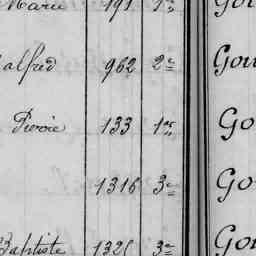 Marie 191 1er Gou
alfred 962 2e Gou
Pierre 133 1er Go
1316 3e Go
Baptiste 1321 3e Gou